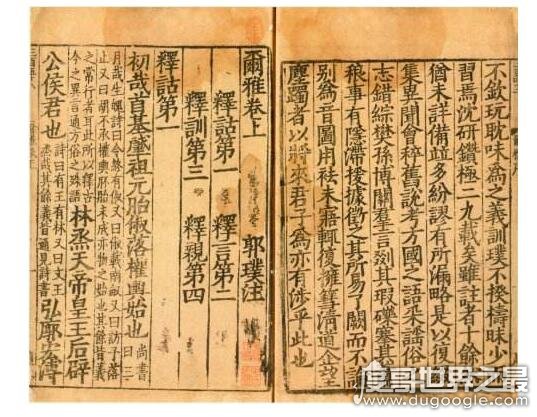 不欽玩耽味為之義訓璞不揆檮昧少
習焉沈研鑽極二九載矣雖註者 餘
猶未詳備竝多紛謬有所漏略是以復
集異聞會稡舊說考方國之語采謠俗
志錯綜樊孫博關羣言剟其瑕礫
稂事有隱滯援據徵之其所易了闕而不
別為音圖用祛未寤輒復擁篲清道企望
塵躅者以將來君子為亦有涉乎此也
爾雅卷上 郭璞注
釋詁第一 釋言第二
釋訓第三 釋親第四
釋詁第一
初哉首基肈祖元胎俶落權輿始也 尚書曰三
月哉生魄詩曰令終有俶又曰俶載南畝又曰訪予落
止又曰胡不承權輿胚胎未成亦物之始也其餘皆義
之常行者耳此所以釋古
今之異言通方俗之殊語 林烝天帝皇王后辟
公侯君也 詩曰有王有林又曰文王
烝哉其餘義皆通見詩書 弘廓宏溥
度哥世界之最
www.dugoogle.com